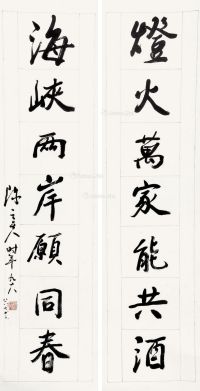 燈火萬家能共酒
海峽两岸願同春
陳立夫 时年九十八